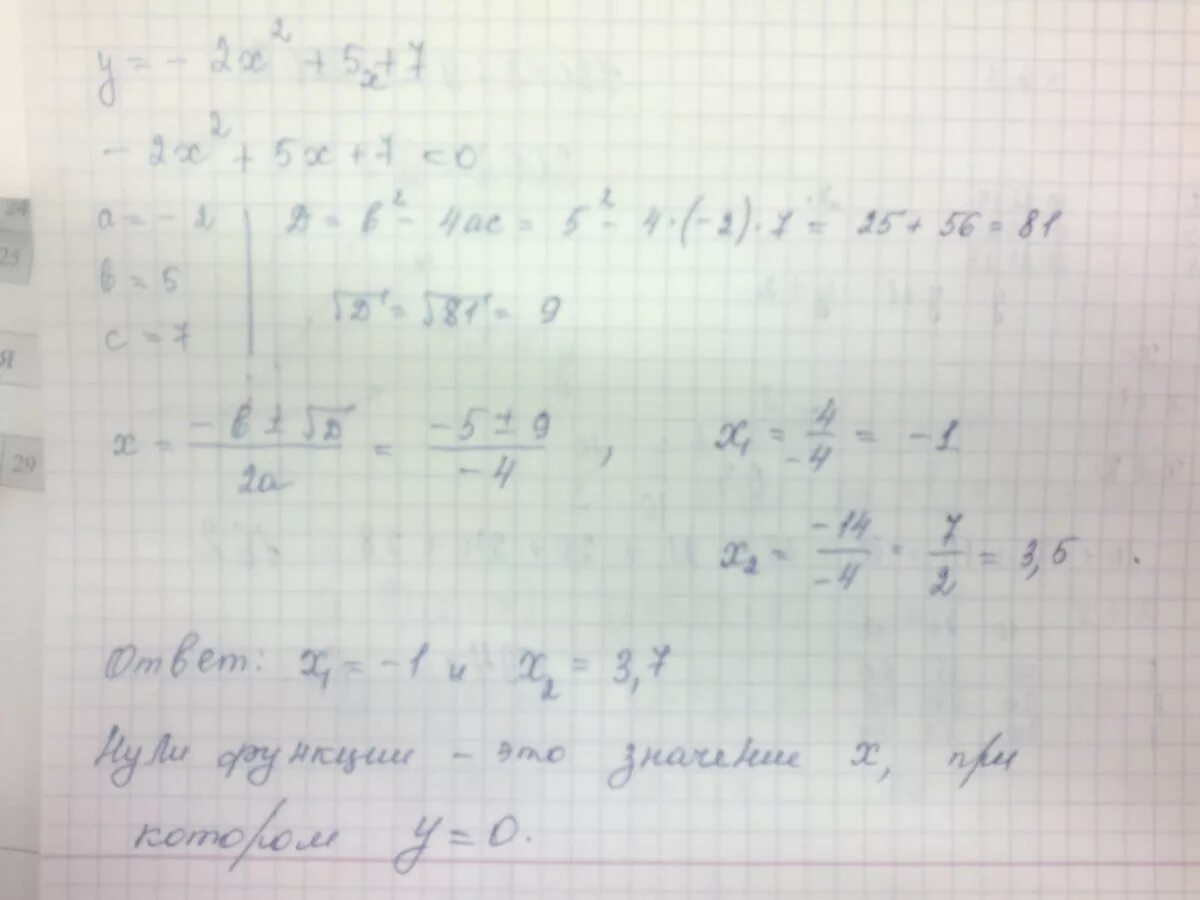 y = - 2x² + 5x + 7
- 2x² + 5x + 7 < 0
a = - 2 | D = b² - 4ac = 5² - 4·(-2)·7 = 25 + 56 = 81
b = 5
√D = √81 = 9
c = 7
x = (-b ± √D)/2a = (-5 ± 9)/-4 , x₁ = 4/-4 = -1
x₂ = -14/-4 = 7/2 = 3,5 .
Ответ: x₁ = -1 и x₂ = 3,7
Нули функции - это значение x, при
котором y = 0.
25
Я
29